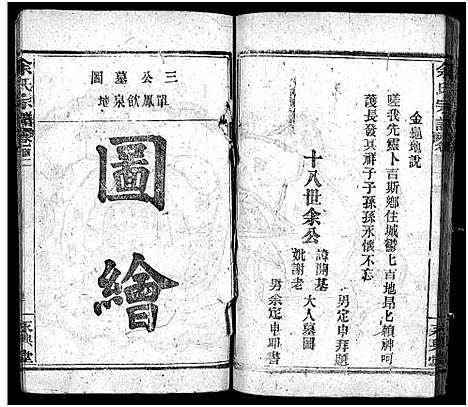 余氏宗譜
金龜地說
嗟我先靈卜吉斯鄉住城鬱七吉地昂比賴神呵
護長發其祥子子孫孫永懷不忘
十八世余公
諱開基
妣謝老
大人墓圖
男定申拜題
男余定申耶書
永興堂
余氏宗譜
三公墓圖
單鳳飲泉地
圖繪
永興堂